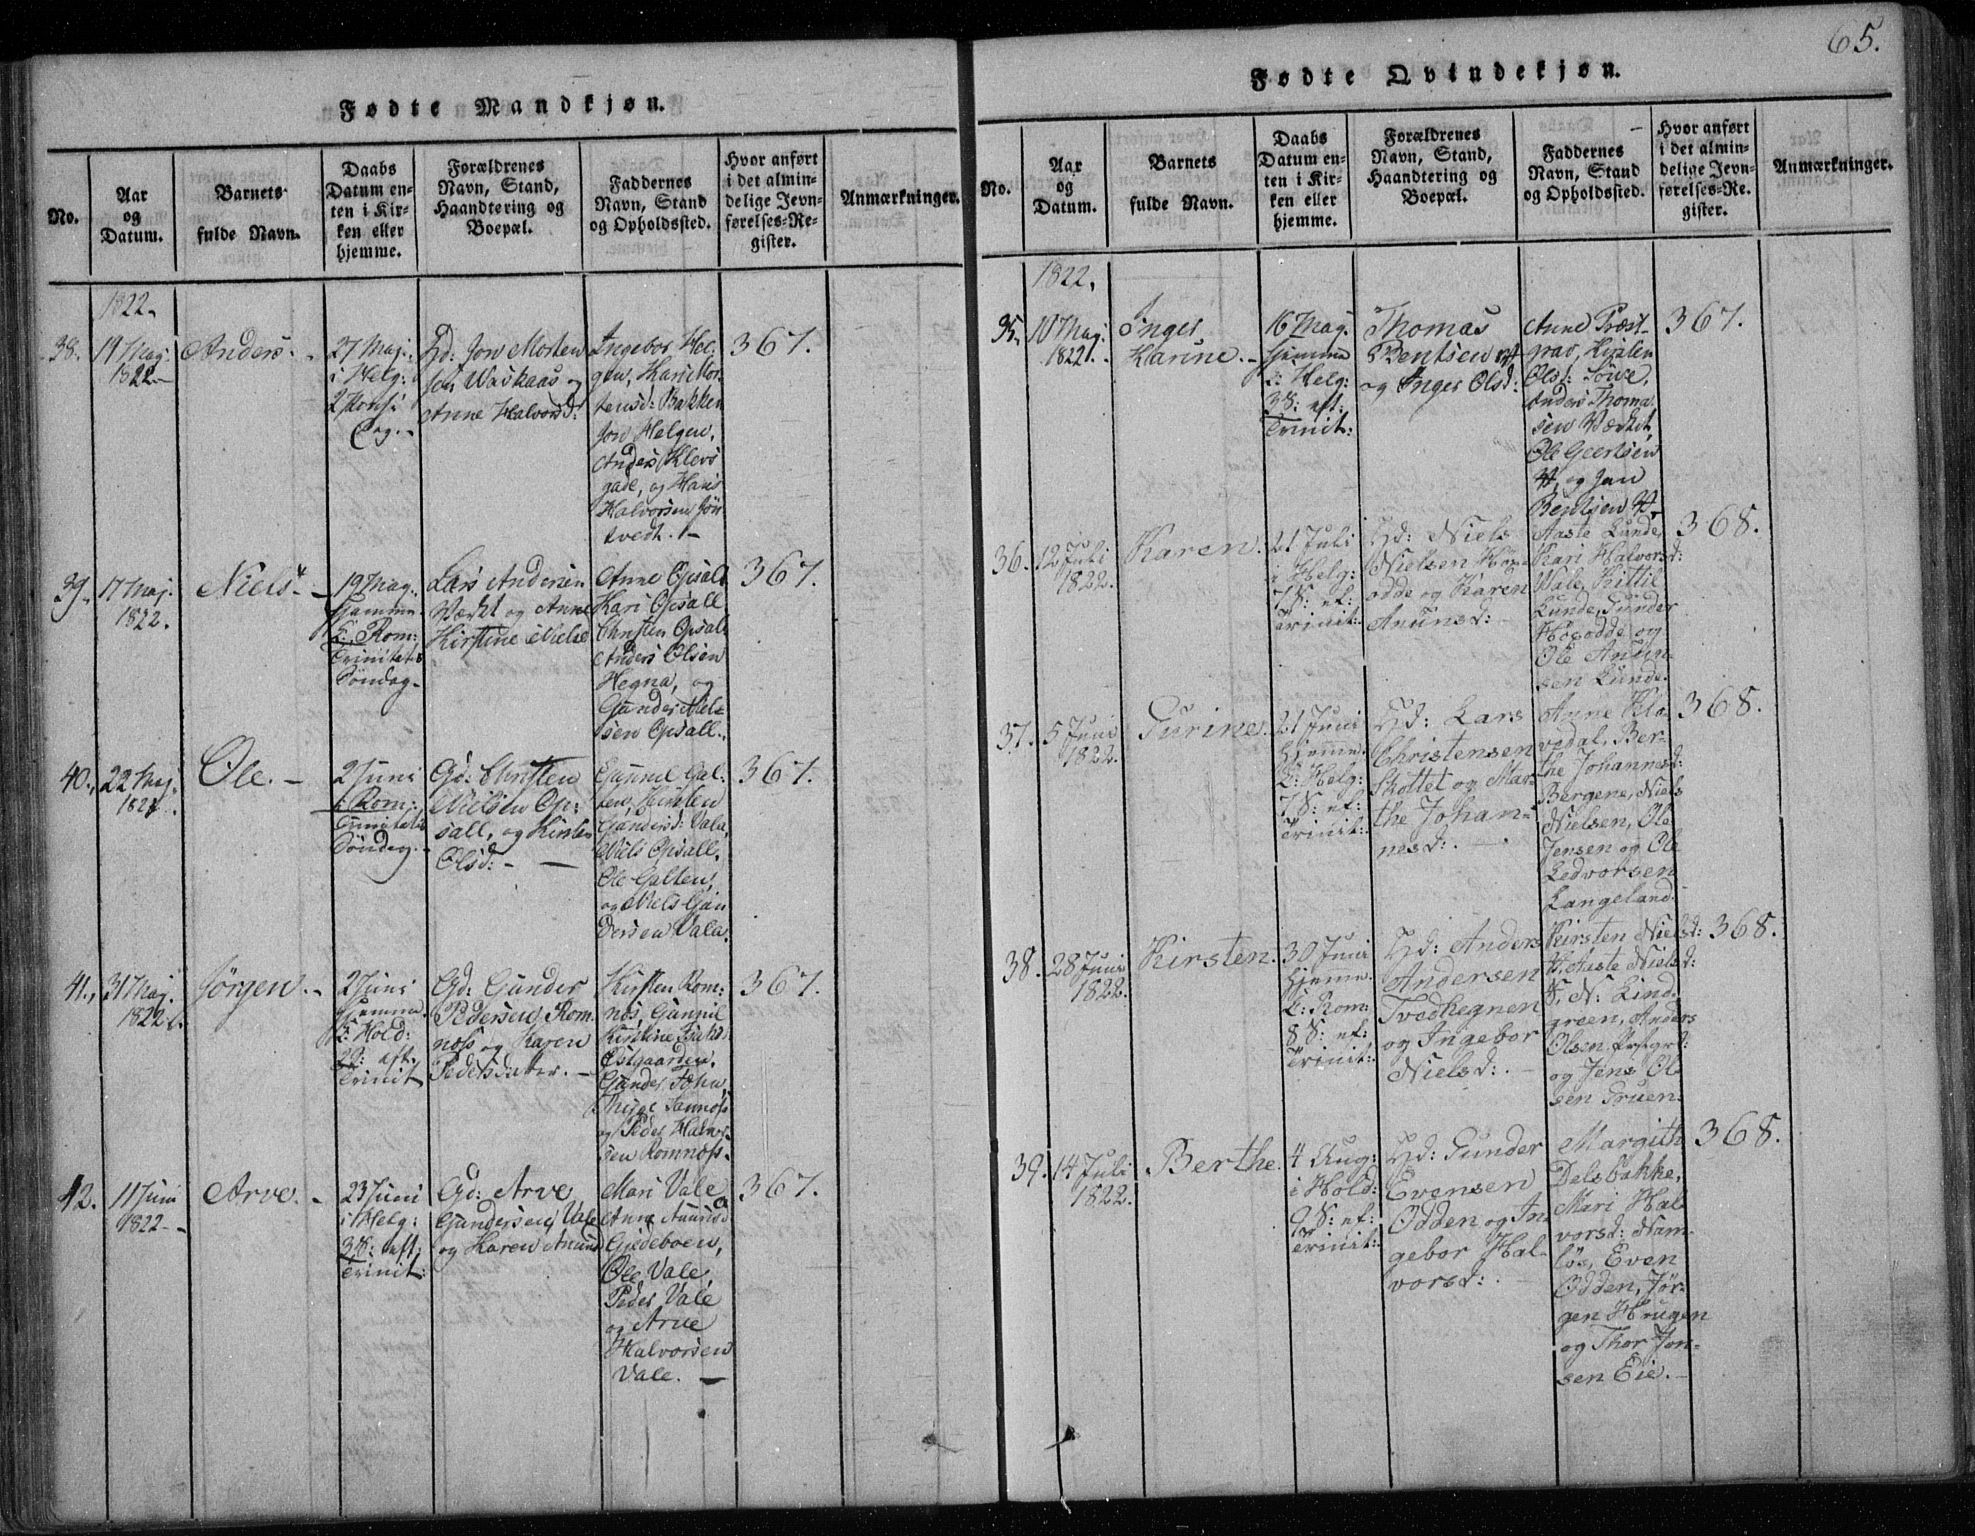 65.
Fødte Mandkjøn.
No.
Aar
og
Datum.
Barnets
fulde Navn.
Daabs
Datum en-
ten i Kir-
ken eller
hjemme.
Forældrenes
Navn, Stand,
Haandtering og
Boepæl.
Faddernes
Navn, Stand
og Opholdssted.
Hvor anført
i det almin-
delige Jevn-
førelses-Re-
gister.
Anmærkninger.
1822.
38.
19 Maj.
1822.
Anders.
27 Maj.
i Helg:
2 Pintse
Dag.
Gd: Jon Morten
sen Waskaas og
Anne Halvorsd:
Ingebor Hel-
gen, Kari Mor-
tensd: Bakken
Jon Helgen,
Anders Klevs
gade, og Hans
Halvorsen Jön
tvedt.
367.
39.
17 Maj.
1822.
Niels.
19 Maj.
hjemme
i Rom:
Trinitatis
Söndag.
Lars Andersen
Værket og Anne
Kirstine Nielsd
Anne Opsall
Kari Opsall
Christen Opsall
Anders Olsen
Hegna, og
Gunder Niel-
sen Opsall.
367.
40.
22 Maj.
1822.
Ole.
2 Juni
i Rom:
Trinitatis
Söndag.
Gd: Christen
Nielsen Op-
sall, og Kirsten
Olsd:
Gunnil Gal-
ten, Kirsten
Gundersd: Vala,
Niels Opsall,
Ole Galten,
og Niels Gun
dersen Vala.
367.
41.
31 Maj.
1822.
Jörgen.
2 Juni
hjemme
i Hold:
2S: eft.
Trinit
Gd: Gunder
Pedersen Rom
noss og Karen
Pedersdatter.
Kirsten Rom-
nos, Gunnil
Kirstine
Ostgaarden,
Gunder John
Thyge Sannoss
og Peder Halvor-
sen Romnoss.
367.
42.
11 Juni
1822.
Arve.
23 Juni
i Helg:
3S: eft,
Trinit:
Gd: Arve
Gundersen Vale
og Karen Anund
Mari Vale
Anne Anunsd
Gjedeboen,
Ole Vale,
Peder Vale
og Arve
Halvorsen
Vale.
367.
Fødte Qvindekjøn.
No.
Aar
og
Datum.
Barnets
fulde Navn.
Daabs
Datum en-
ten i Kir-
ken eller
hjemme.
Forældrenes
Navn, Stand,
Haandtering og
Boepæl.
Faddernes
Navn, Stand
og Opholdssted.
Hvor anført
i det almin-
delige Jevn-
førelses-Re-
gister.
Anmærkninger.
1822.
35.
10 Maj.
1822.
Inger
Karine.
16 Maj.
hjemme
i Helg:
3S: eft:
Trinit:
Thomas
Bentsen
og Inger Olsd:
Anne Præst-
grav, Kirsten
Olsd: Löwe,
Anders Thoma
sen Værket,
Ole Geertsen
og Jan
Bentsen
367.
36.
12 Juli
1822.
Karen.
21 Juli
i Helg:
7S: ef:
Trinit:
Hd: Niels
Nielsen Hög-
odde og Karen
Anunsd:
Aaste Lunde,
Kari Halvorsd:
Vale, Kittil
Lunde, Gunder
Högodde og
Ole Anun-
sen Lunde.
368.
37.
5 Juni
1822.
Gurine.
21 Juni
hjemme.
i Helg:
7S: ef:
Trinit:
Hd: Lars
Christensen
Skottet og Mar-
the Johan-
nesd:
Anne Klo-
vedal, Ber-
the Johannesd:
Bergene, Niels
Nielsen, Ole
Jensen og Ole
Ledvorsen
Langeland.
368.
38.
28 Juni
1822.
Kirsten.
30 Juni
hjemme.
i Rom:
8S: ef:
Trinit:
Hd: Anders
Andersen
Tvedhegnen
og Ingebor
Nielsd:
Kirsten Nielsd:
Aaste Nielsd:
N: Lind-
green, Anders
Olsen Prstgrd:
og Jens Ol-
sen Gruen.
368.
39.
14 Juli
1822.
Berthe.
4 Aug:
i Hold:
9S: ef:
Trinit:
Hd: Gunder
Evensen
Odden og In-
gebor Hal-
vorsd:
Margith
Dalsbakke,
Mari Hal
vorsd: Nam-
lös, Even
Odden, Jör-
gen Haugen
og Thor Jon-
sen Eie.
368.